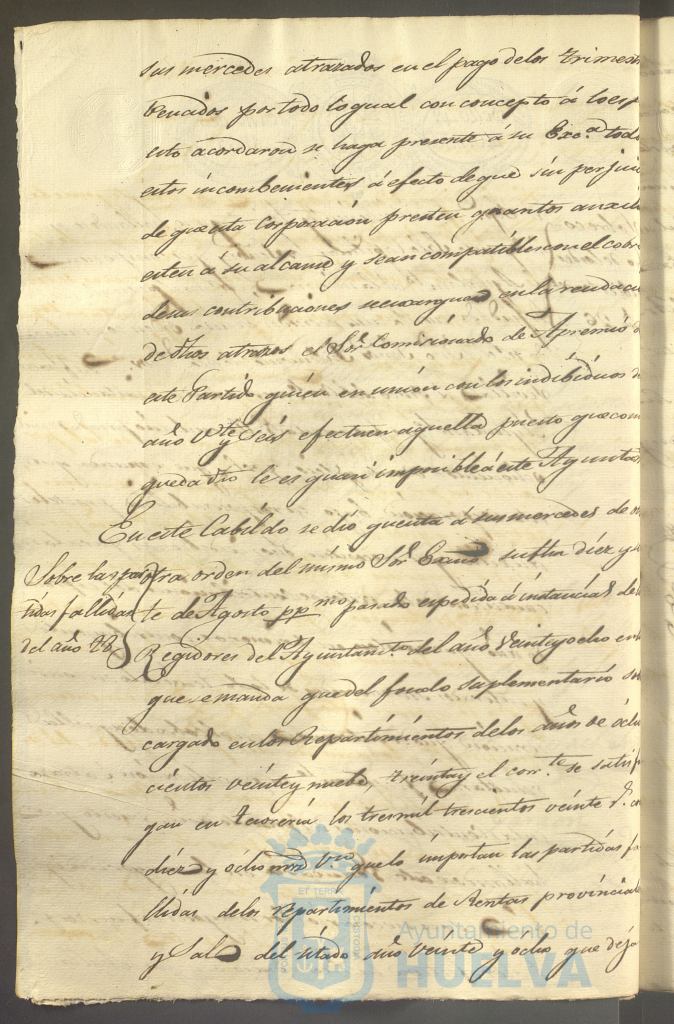 sus mercedes atrazados en el pago delos trimest
bencados por todo lo qual con concepto á loesp
esto acordaron se haga presente á su Exc.ª todo
estos incombenientes á efecto de que sin perjui
de que esta Corporación presten quantos auxili
esten á su alcance y sean compatibles con el cobr
desus contribuciones se encargue en la rendaci
de dhos atrazos el Sor. Comicionado de Apremio d
este Partido quien en union con los indibiduos d
año Vte y Seis efectuen aquella puesto que com
queda dho le es quasi imposible á este Ayuntam
En este Cabildo se dió quenta á sus mercedes de
Sobre las par
tidas fallidas
del año 28
otra orden del mismo Sor. Exmo su fha diez y
te de Agosto pp.mo pasado espedida á instancia de
Regidores del Ayuntam.to del año Veinte y ocho en
que se manda que del fondo suplementario
cargado en los Repartimientos delos años de ócho
cientos veinte y nuebe, treinta y el corr.te se satisf
gan en tesoreria los tres mil trescientos veinte r.s
diez y ocho mrs v.on que lo importan las partidas fa
llidas delos repartimientos de Rentas provincial
y Sal del citado año veinte y ocho que dejo
ET TERRÆ
Ayuntamiento de
HUELVA